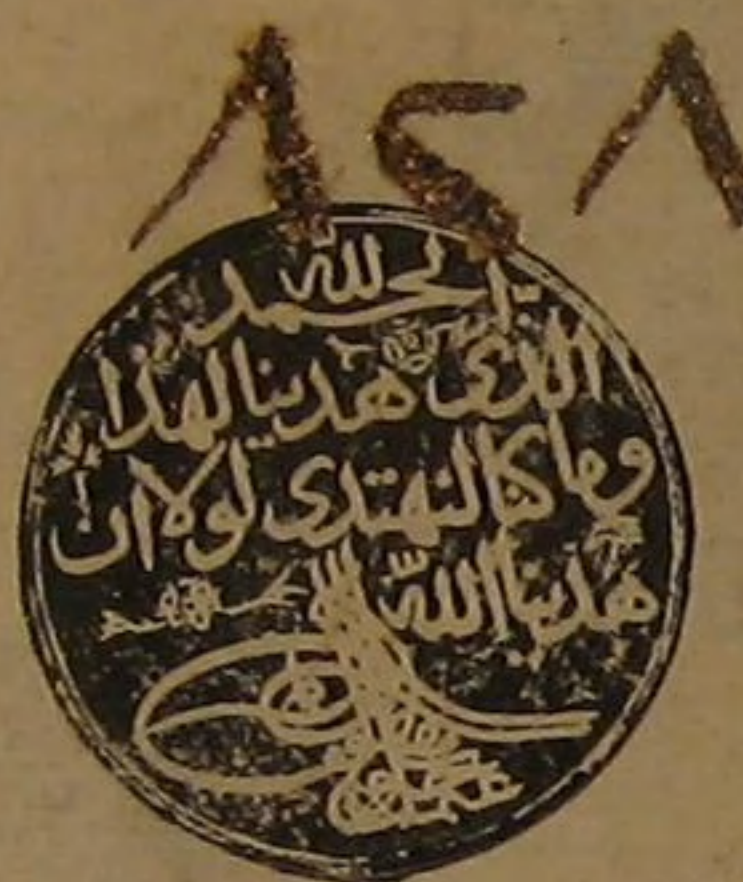 ٨٤٨
الحمد لله
الذى هدينا لهذا
وما كنا لنهتدى لولا ان
هدينا الله